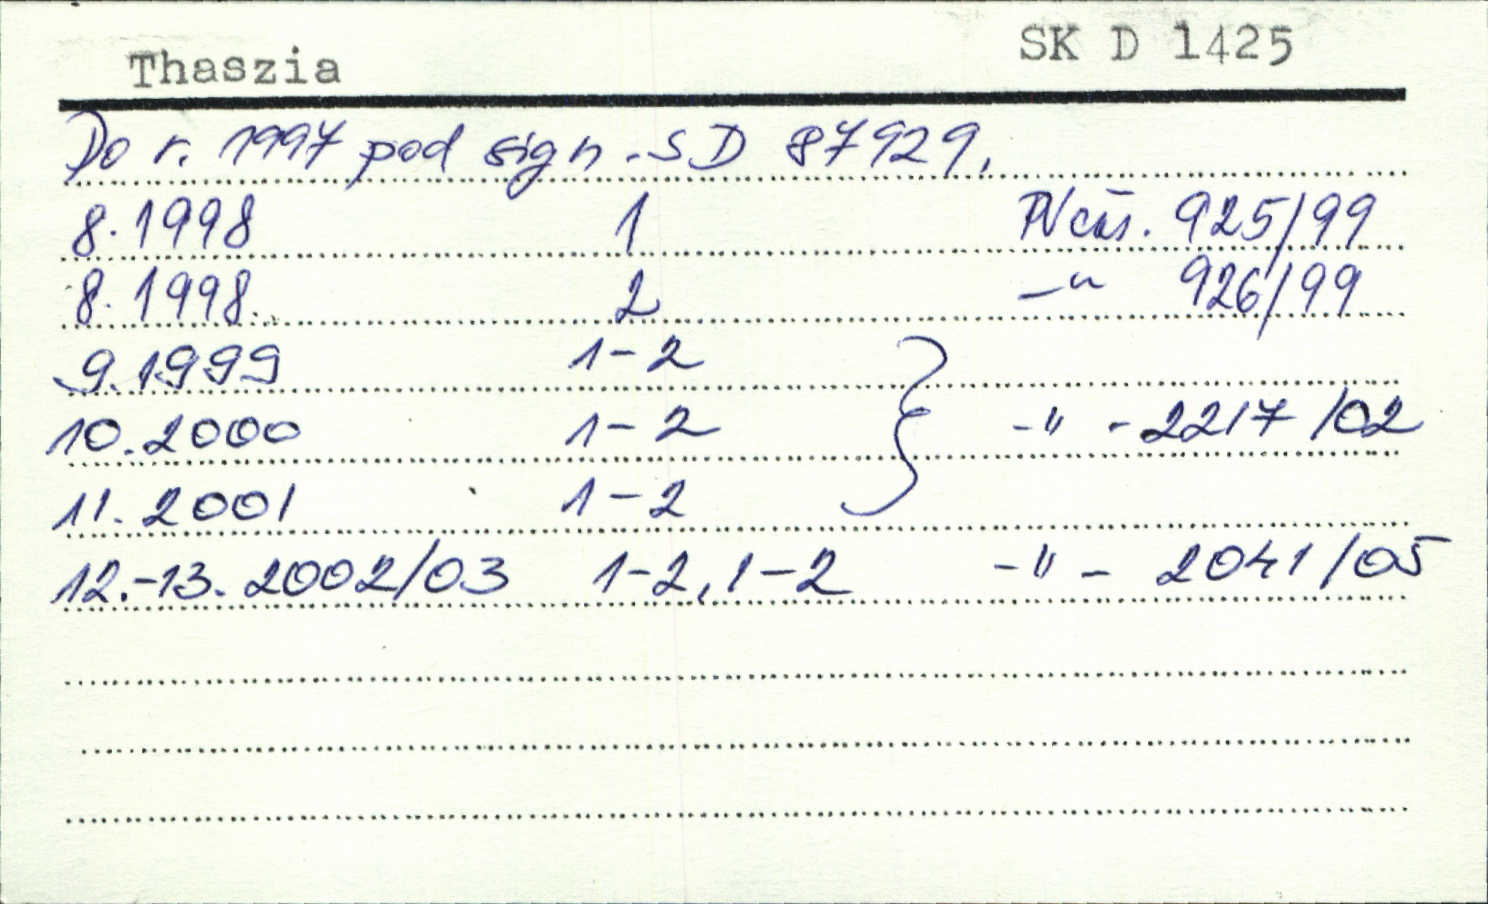 Thaszia SK D 1425
Do r. 1997 pod sign. SD 87929.
8. 1998 1 PV čas. 925/99
8. 1998. 2 –"– 926/99
9. 1999 1-2
10. 2000 1-2 -"- 2217/02
11. 2001 1-2
12.-13. 2002/03 1-2, 1-2 -"- 2041/05